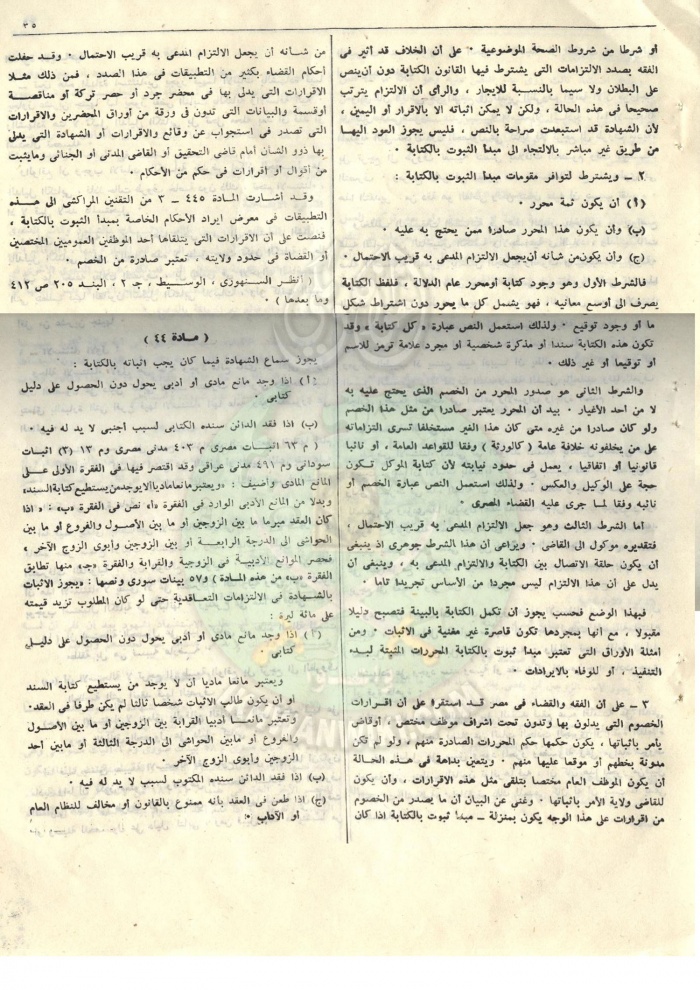 ٣٥
أو شرطا من شروط الصحة الموضوعية ٠ على أن الخلاف قد أثير فى
الفقه بصدد الالتزامات التى يشترط فيها القانون الكتابة دون أن ينص
على البطلان ولا سيما بالنسبة للايجار ، والرأى أن الالتزام يترتب
صحيحا فى هذه الحالة ، ولكن لا يمكن اثباته الا بالاقرار أو اليمين ،
لأن الشهادة قد استبعدت صراحة بالنص ، فليس يجوز العود اليها
من طريق غير مباشر بالالتجاء الى مبدأ الثبوت بالكتابة ٠
٢ ــ ويشترط لتوافر مقومات مبدأ الثبوت بالكتابة :
(أ) أن يكون ثمة محرر ٠
(ب) وأن يكون هذا المحرر صادرا ممن يحتج به عليه ٠
(ج) وأن يكون من شأنه أن يجعل الالتزام المدعى به قريب الاحتمال ٠
فالشرط الأول وهو وجود كتابة أو محرر عام الدلالة ، فلفظ الكتابة
يصرف الى أوسع معانيه ، فهو يشمل كل ما يحرر دون اشتراط شكل
ما أو وجود توقيع ٠ ولذلك استعمل النص عبارة « كل كتابة » وقد
تكون هذه الكتابة سندا أو مذكرة شخصية أو مجرد علامة ترمز للاسم
أو توقيعا أو غير ذلك ٠
والشرط الثانى هو صدور المحرر من الخصم الذى يحتج عليه به
لا من أحد الأغيار ٠ بيد أن المحرر يعتبر صادرا من مثل هذا الخصم
ولو كان صادرا من غيره متى كان هذا الغير مستخلفا تسرى التزاماته
على من يخلفونه خلافة عامة ( كالورثة ) وفقا للقواعد العامة ، أو نائبا
قانونيا أو اتفاقيا ، يعمل فى حدود نيابته لأن كتابة الموكل تكون
حجة على الوكيل والعكس ٠ ولذلك استعمل النص عبارة الخصم أو
نائبه وفقا لما جرى عليه القضاء المصرى ٠
أما الشرط الثالث وهو جعل الالتزام المدعى به قريب الاحتمال ،
فتقديره موكول الى القاضى ٠ ويراعى أن هذا الشرط جوهرى اذ ينبغى
أن يكون حلقة الاتصال بين الكتابة والالتزام المدعى به ، وينبغى أن
يدل على أن هذا الالتزام ليس مجردا من الأساس تجريدا تاما ٠
فبهذا الوضع فحسب يجوز أن تكمل الكتابة بالبينة فتصبح دليلا
مقبولا ، مع أنها بمجردها تكون قاصرة غير مغنية فى الاثبات ٠ ومن
أمثلة الأوراق التى تعتبر مبدأ ثبوت بالكتابة المحررات المثبتة لبدء
التنفيذ ، أو للوفاء بالايرادات ٠
٣ ــ على أن الفقه والقضاء فى مصر قد استقرا على أن اقرارات
الخصوم التى يدلون بها وتدون تحت اشراف موظف مختص ، أو قاض
يأمر باثباتها ، يكون حكمها حكم المحررات الصادرة منهم ، ولو لم تكن
مدونة بخطهم أو موقعا عليها منهم ٠ ويتعين بداهة فى هذه الحالة
أن يكون الموظف العام مختصا بتلقى مثل هذه الاقرارات ، وأن يكون
للقاضى ولاية الأمر باثباتها ٠ وغنى عن البيان أن ما يصدر من الخصوم
من اقرارات على هذا الوجه يكون بمنزلة ــ مبدأ ثبوت بالكتابة اذا كان
من شأنه أن يجعل الالتزام المدعى به قريب الاحتمال ٠ وقد حفلت
أحكام القضاء بكثير من التطبيقات فى هذا الصدد ، فمن ذلك مثلا
الاقرارات التى يدلى بها فى محضر جرد أو حصر تركة أو مناقصة
أو قسمة والبيانات التى تدون فى ورقة من أوراق المحضرين والاقرارات
التى تصدر فى استجواب عن وقائع والاقرارات أو الشهادة التى يدلى
بها ذوو الشأن أمام قاضى التحقيق أو القاضى المدنى أو الجنائى وما يثبت
من أقوال أو اقرارات فى حكم من الأحكام ٠
وقد أشارت المادة ٤٤٥ ــ ٣ من التقنين المراكشى الى هذه
التطبيقات فى معرض ايراد الأحكام الخاصة بمبدأ الثبوت بالكتابة ،
فنصت على أن الاقرارات التى يتلقاها أحد الموظفين العموميين المختصين
أو القضاة فى حدود ولايته ، تعتبر صادرة من الخصم ٠
( أنظر السنهورى ، الوسيط ، جـ ٢ ، البند ٢٠٥ ص ٤١٢
وما بعدها ) ٠
( مادة ٤٤ )
يجوز سماع الشهادة فيما كان يجب اثباته بالكتابة :
(أ) اذا وجد مانع مادى أو أدبى يحول دون الحصول على دليل
كتابى ٠
(ب) اذا فقد الدائن سنده الكتابى لسبب أجنبى لا يد له فيه ٠
( م ٦٣ اثبات مصرى م ٤٠٣ مدنى مصرى وم ١٣ (٣) اثبات
سودانى وم ٤٦١ مدنى عراقى وقد اقتصر فيها فى الفقرة الأولى على
المانع المادى وأضيف : «ويعتبر مانعا ماديا ألا يوجد من يستطيع كتابة السند»
وبدلا من المانع الأدبى الوارد فى الفقرة «أ» نص فى الفقرة «ب» : « اذا
كان العقد مبرما ما بين الزوجين أو ما بين الأصول والفروع أو ما بين
الحواشى الى الدرجة الرابعة أو بين الزوجين وأبوى الزوج الآخر »
فحصر الموانع الأدبية فى الزوجية والقرابة والفقرة «جـ» منها تطابق
الفقرة «ب» من هذه المادة ) و٥٧ بينات سورى ونصها : «يجوز الاثبات
بالشهادة فى الالتزامات التعاقدية حتى لو كان المطلوب تزيد قيمته
على مائة ليرة :
( أ ) اذا وجد مانع مادى أو أدبى يحول دون الحصول على دليل
كتابى ٠
ويعتبر مانعا ماديا أن لا يوجد من يستطيع كتابة السند
أو أن يكون طالب الاثبات شخصا ثالثا لم يكن طرفا فى العقد٠
وتعتبر مانعا أدبيا القرابة بين الزوجين أو ما بين الأصول
والفروع أو ما بين الحواشى الى الدرجة الثالثة أو ما بين أحد
الزوجين وأبوى الزوج الآخر ٠
(ب) اذا فقد الدائن سنده المكتوب لسبب لا يد له فيه ٠
(ج) اذا طعن فى العقد بأنه ممنوع بالقانون أو مخالف للنظام العام
أو الآداب ٠